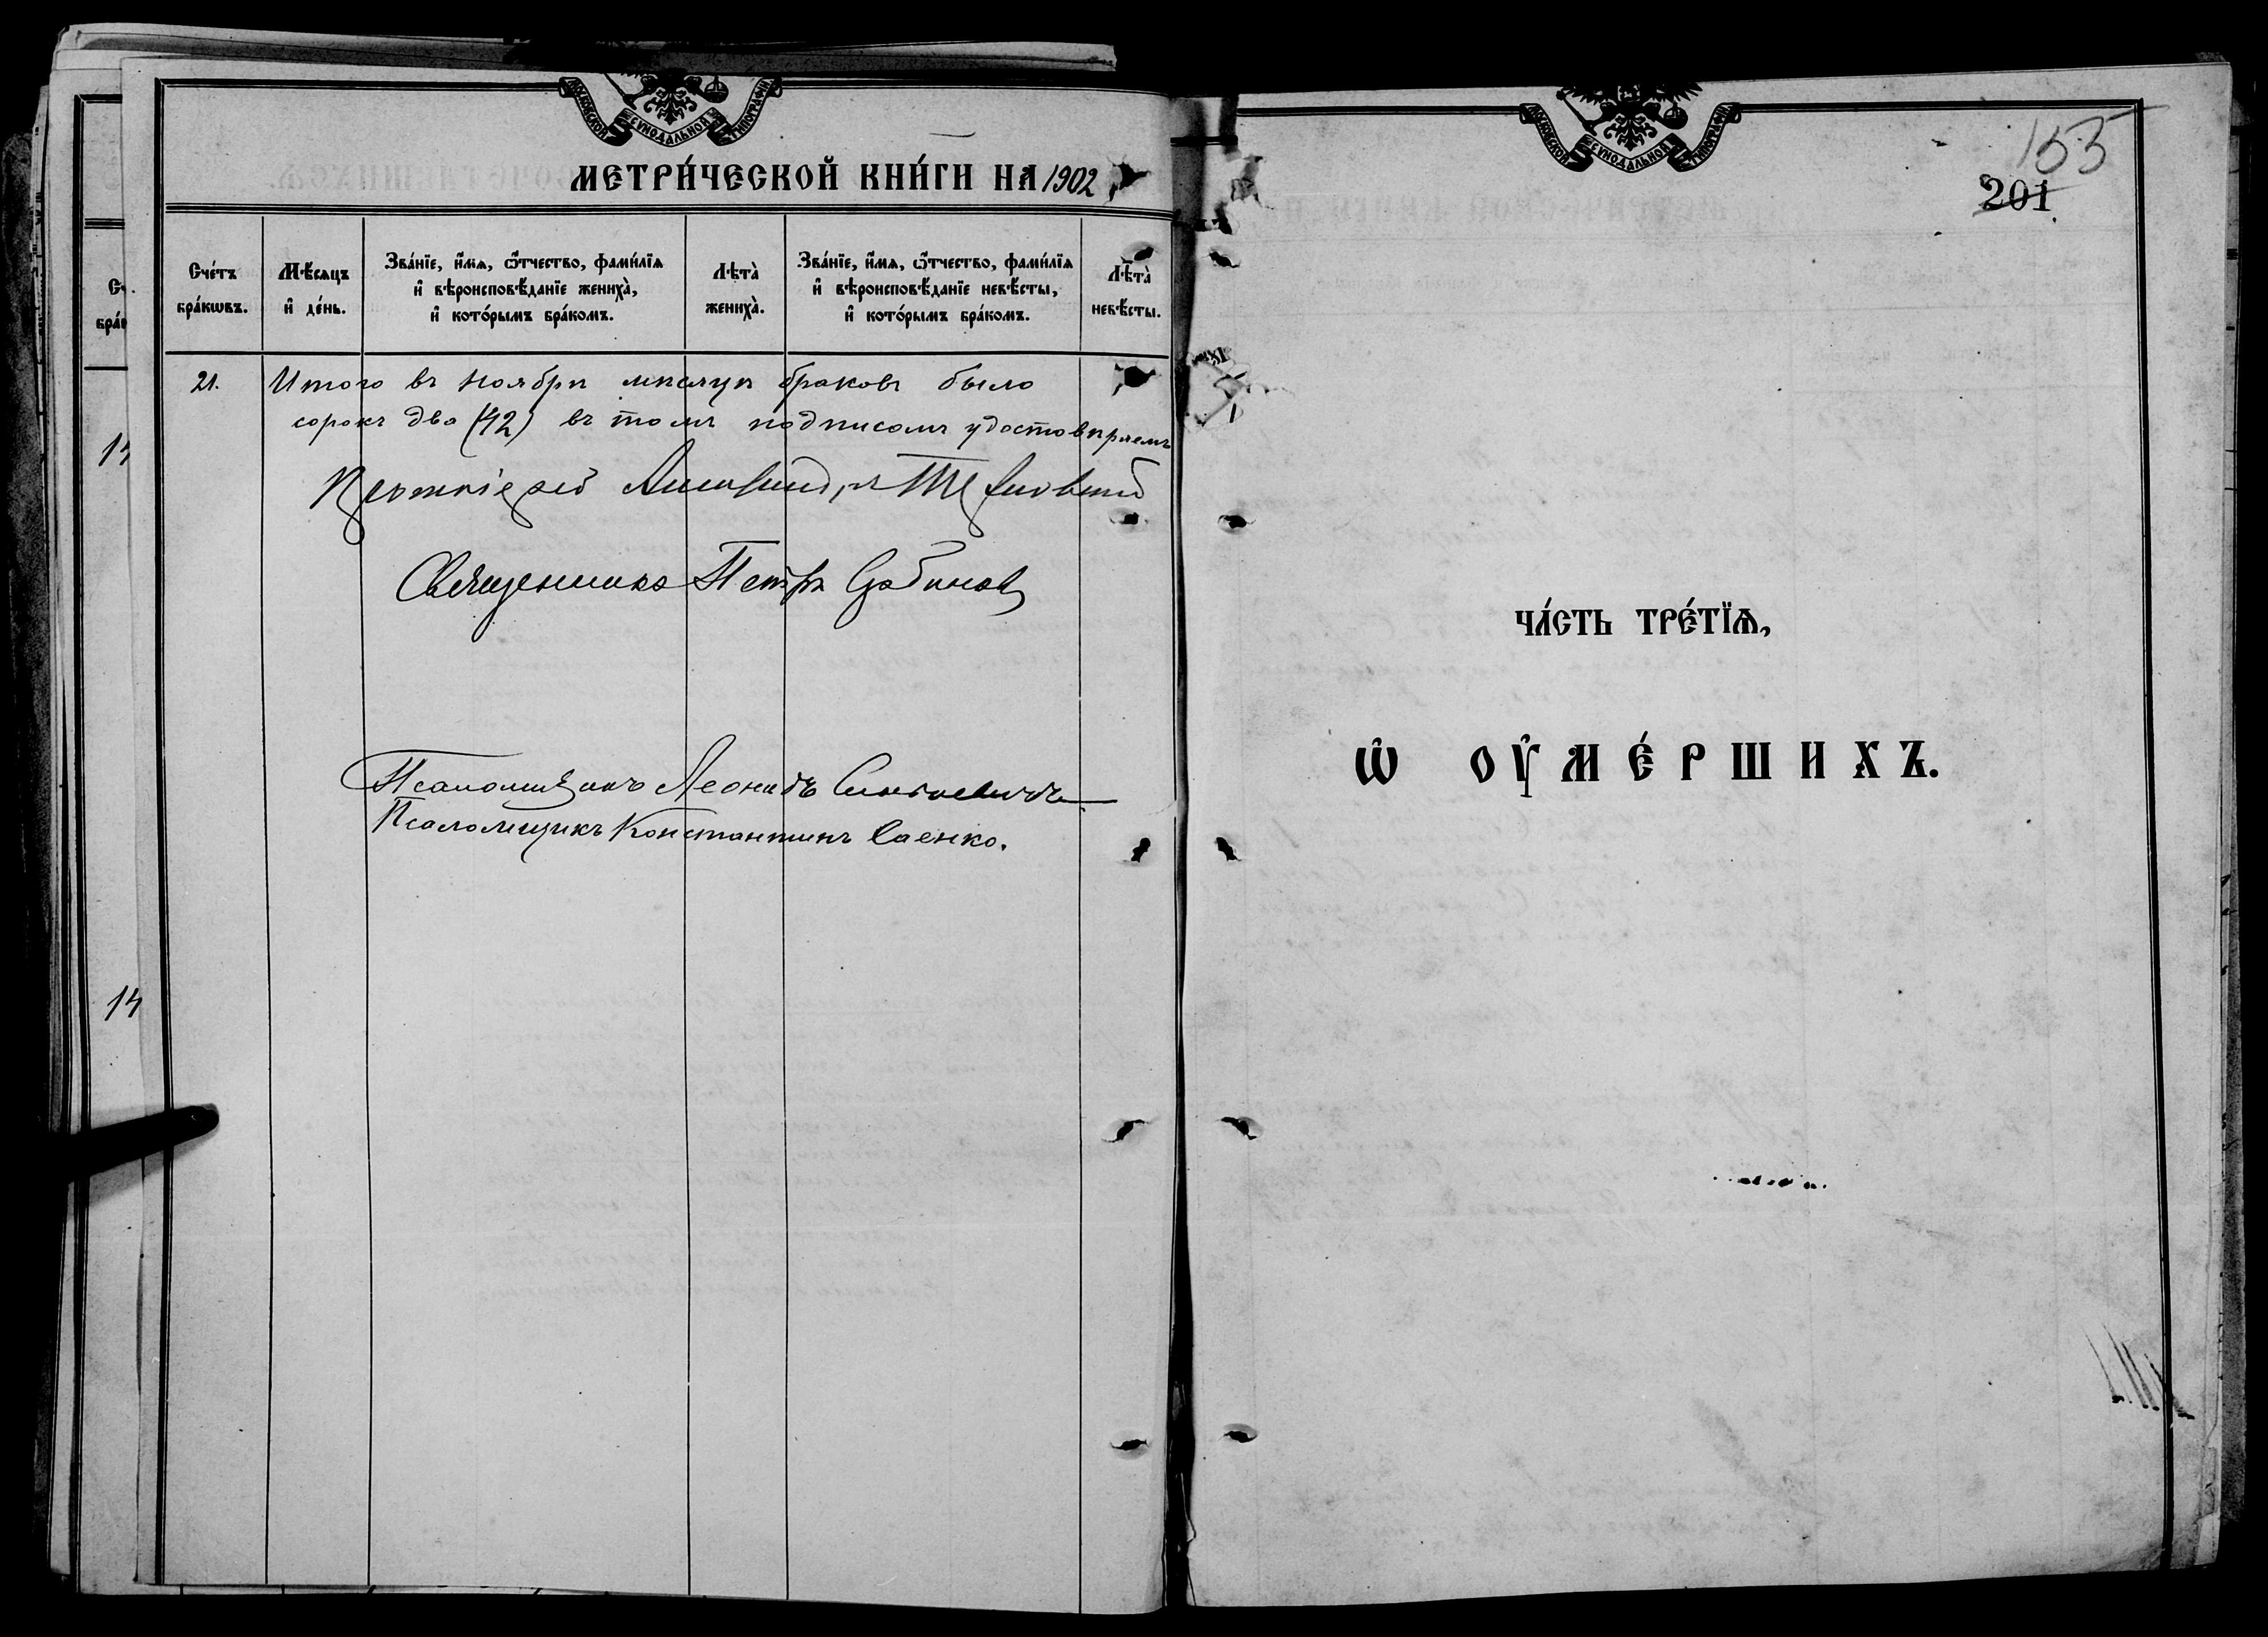 МОСКОВСКОЙ СѴНОДАЛЬНОЙ ТИПОГРАФІИ
МЕТРИ́ЧЕСКОЙ КНИ́ГИ НА 1902
Сче́тъ бра́кѡвъ.
Мѣ́сяцъ и҆ де́нь.
Зва́нїе, и҆́мѧ, ѻ҆́тчество, фами́лїѧ
и҆ вѣроисповѣ́данїе женихà,
и҆ кото́рымъ бра́комъ.
Лѣтà женихà.
Зва́нїе, и҆́мѧ, ѻ҆́тчество, фами́лїѧ
и҆ вѣроисповѣ́данїе невѣ́сты,
и҆ кото́рымъ бра́комъ.
Лѣтà невѣ́сты.
21. Итого въ ноябрѣ мѣсяцѣ браковъ было
сорокъ два (42) въ томъ подписомъ удостовѣряемъ
Протоіерей
Священникъ Петръ
Псаломщикъ Леонидъ
Псаломщикъ Константинъ Саенко.
14
14
МОСКОВСКОЙ СѴНОДАЛЬНОЙ ТИПОГРАФІИ
153
201
ЧА́СТЬ ТРЕ́ТЇѦ,
Ѡ҆ ОУ҆МЕ́РШИХЪ.